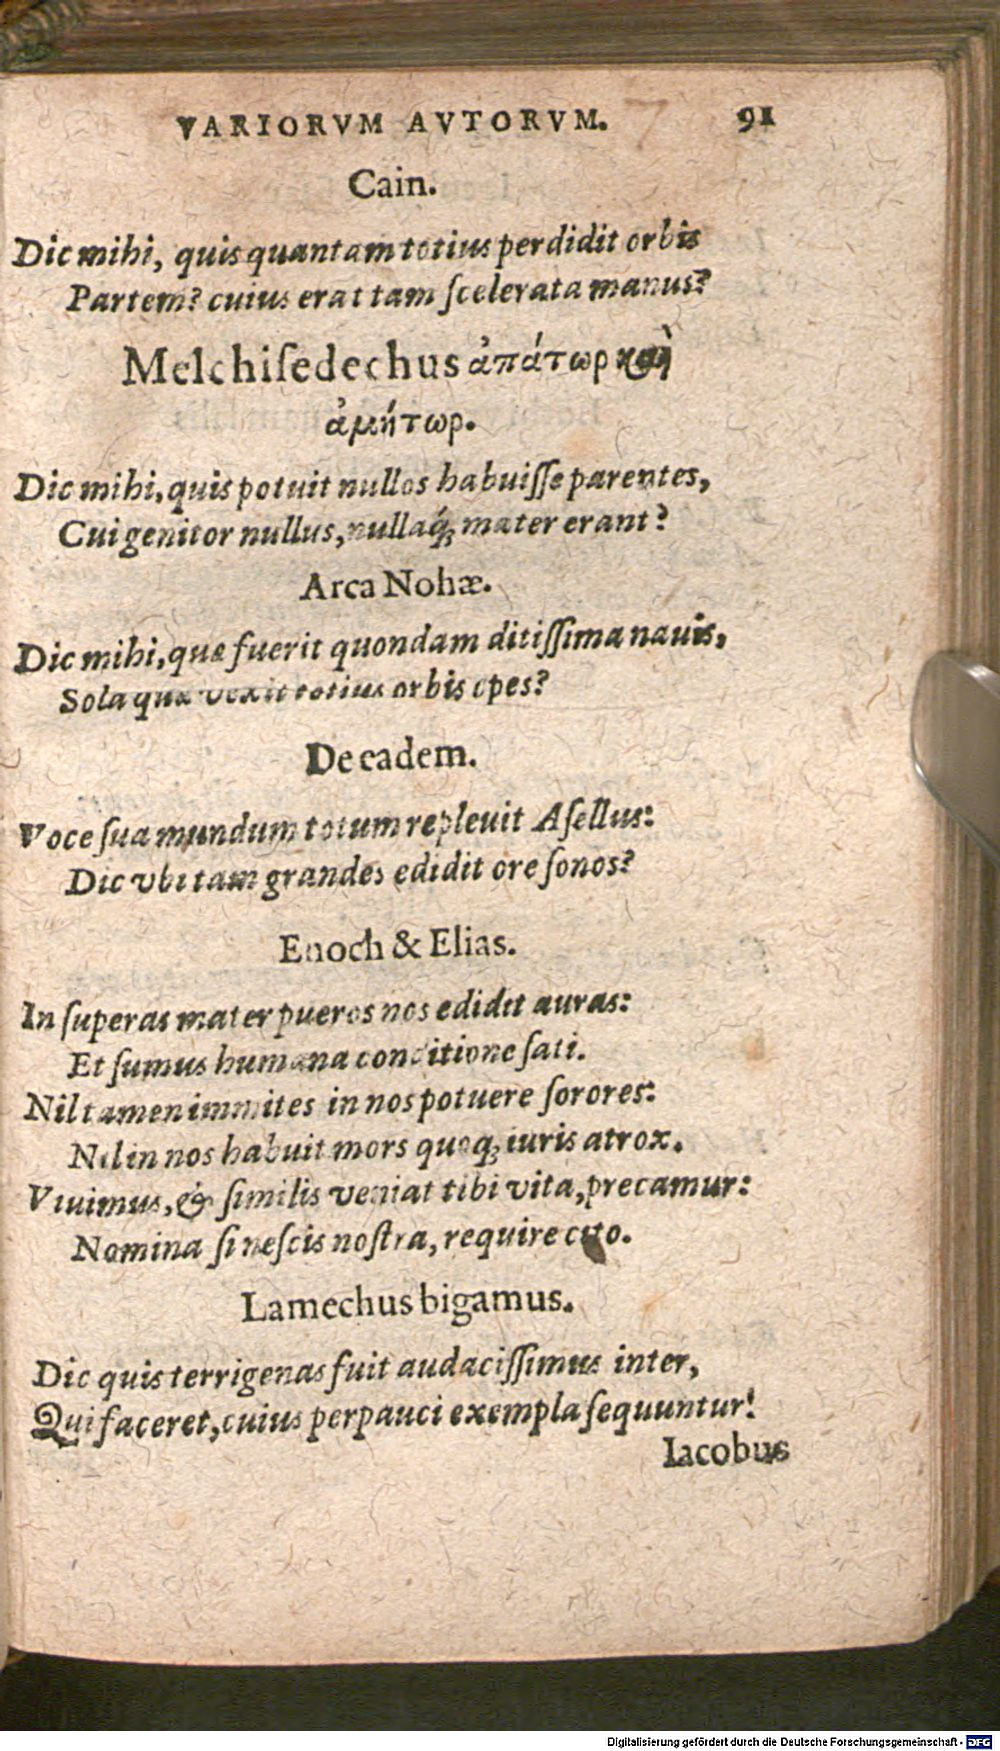 VARIORVM AVTORVM. 91
Cain.
Dic mihi, quis quantam totius perdidit orbis
Partem? cuius erat tam ſcelerata manus?
Melchiſedechus ἀπάτωρ καὶ
ἀμήτωρ.
Dic mihi, quis potuit nullos habuiſſe parentes,
Cui genitor nullus, nullaq́; mater erant?
Arca Nohæ.
Dic mihi, quæ fuerit quondam ditiſſima nauis,
Sola quæ vexit totius orbis opes?
De eadem.
Voce ſua mundum totum repleuit Aſellus:
Dic vbi tam grandes edidit ore ſonos?
Enoch & Elias.
In ſuperas mater pueros nos edidit auras:
Et ſumus humana conditione ſati.
Nil tamen immites in nos potuere ſorores:
Nil in nos habuit mors quoq; iuris atrox.
Viuimus, & ſimilis veniat tibi vita, precamur:
Nomina ſi neſcis noſtra, require cito.
Lamechus bigamus.
Dic quis terrigenas fuit audaciſſimus inter,
Qui faceret, cuius perpauci exempla ſequuntur!
Iacobus
Digitalisierung gefördert durch die Deutsche Forschungsgemeinschaft - DFG